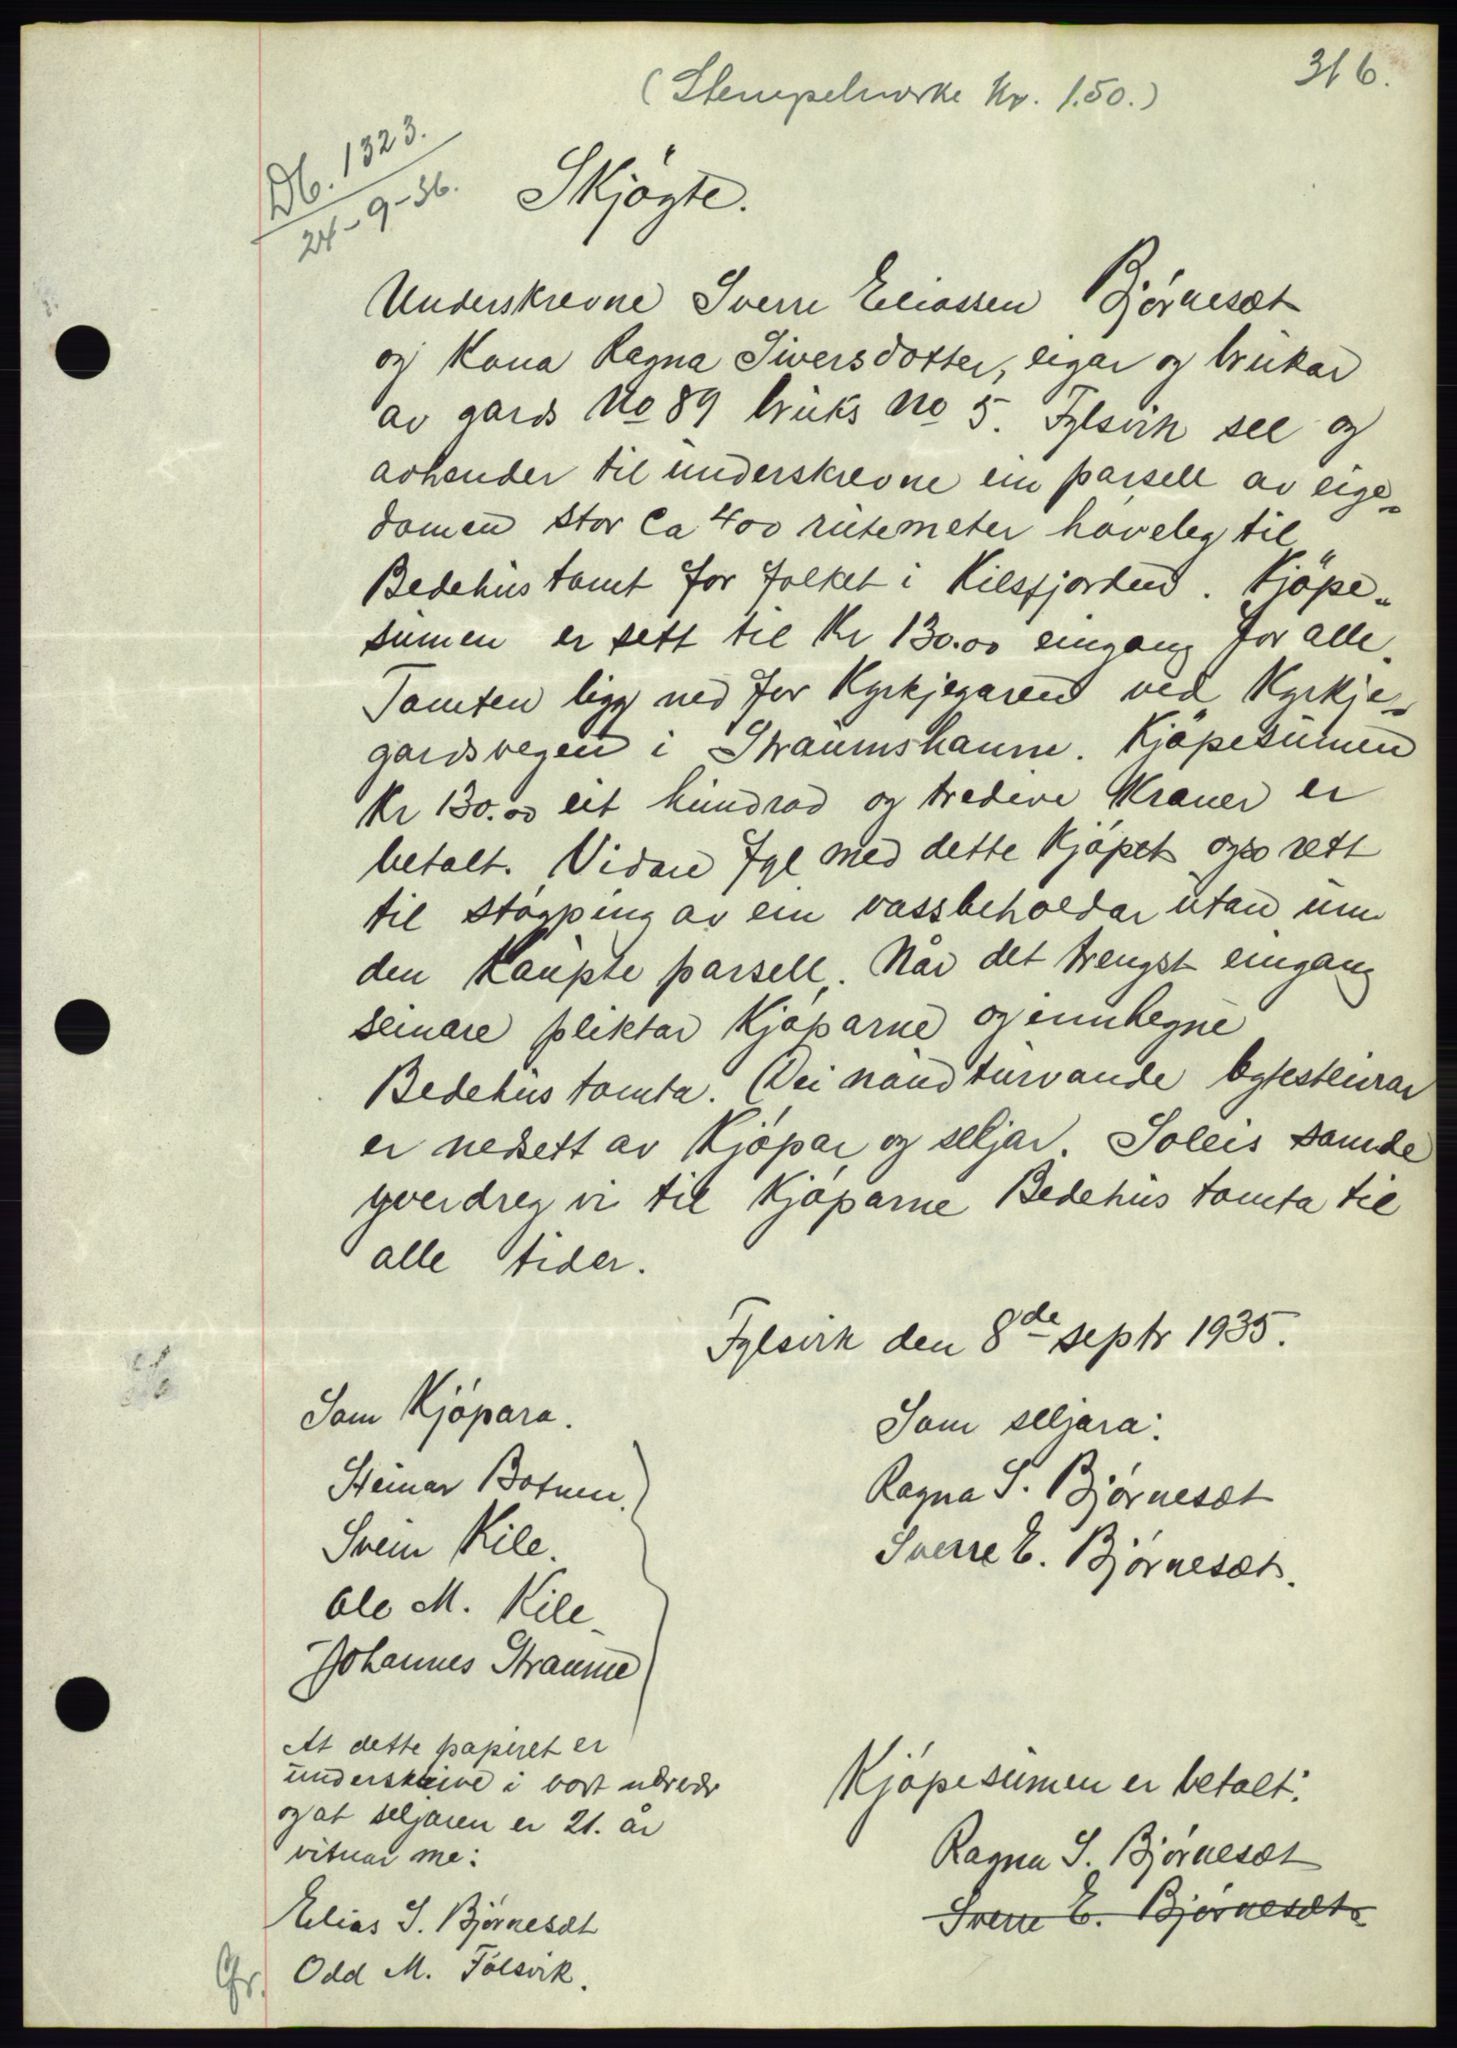 316.
(Stempelmerke Kr. 1.50.)
Db. 1323.
24-9-36.
Skjøgte.
Underskrevne Sverre Eliassen Bjørneset
og Kona Ragna Siversdotter, eigar og brukar
av gards No 89 bruks No 5. Fylsvik sel og
avhender til underskrevne ein parsell av eige-
domen stor Ca 400 rutemeter høveleg til
Bedehustomt for folket i Kilsfjorden. Kjøpe-
sumen er sett til Kr 130.00 eingang for alle.
Tomten ligg ned for Kyrkjegaren ved Kyrkje-
gardsvegen i Straumshamn. Kjøpesumen
Kr 130.00 eit hundrad og tredeve Kroner er
betalt. Vidare fyl med dette Kjøpet ogso rett
til støyping av ein vassbeholdar utan um
den Kaupte parsell. Når det trengst eingang
seinare pliktar Kjøparne og innhegne
Bedehustomta. Dei naudturvande bytesteinar
er nedsett av Kjøpar og seljar. Soleis samde
yverdreg vi til Kjøparne Bedehustomta til
alle tider.
Fylsvik den 8de septr 1935.
Som Kjøpara.
Steinar Botnen.
Svein Kile.
Ole M. Kile.
Johannes Straume
Som seljara:
Ragna S. Bjørneset
Sverre E. Bjørneset.
At dette papiret er
underskrive i vort nærvær
og at seljaren er 21. år
vitnar me:
Elias S. Bjørneset
Odd M. Følsvik.
Kjøpesumen er betalt:
Ragna S. Bjørneset
Sverre E. Bjørneset.